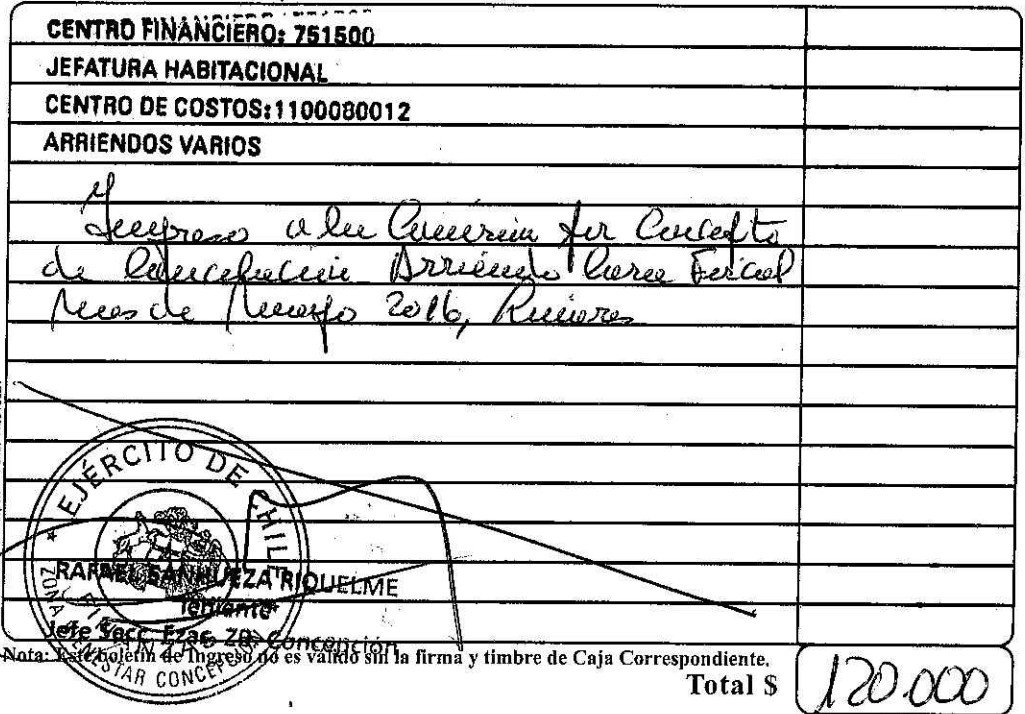 CENTRO FINANCIERO: 751500
JEFATURA HABITACIONAL
CENTRO DE COSTOS:1100080012
ARRIENDOS VARIOS
Ingreso a la Comisión por Concepto
de Cancelación Arriendo Casa Fiscal
Mes de Marzo 2016,
EJÉRCITO DE CHILE
RAFAEL SANHUEZA RIQUELME
Teniente
Jefe Secc. Fzas. ZB. Concepción
ZONA BIENESTAR CONCEPCIÓN
FINANZAS
Nota: Este boletín de Ingreso no es válido sin la firma y timbre de Caja Correspondiente.
Total $ 120.000